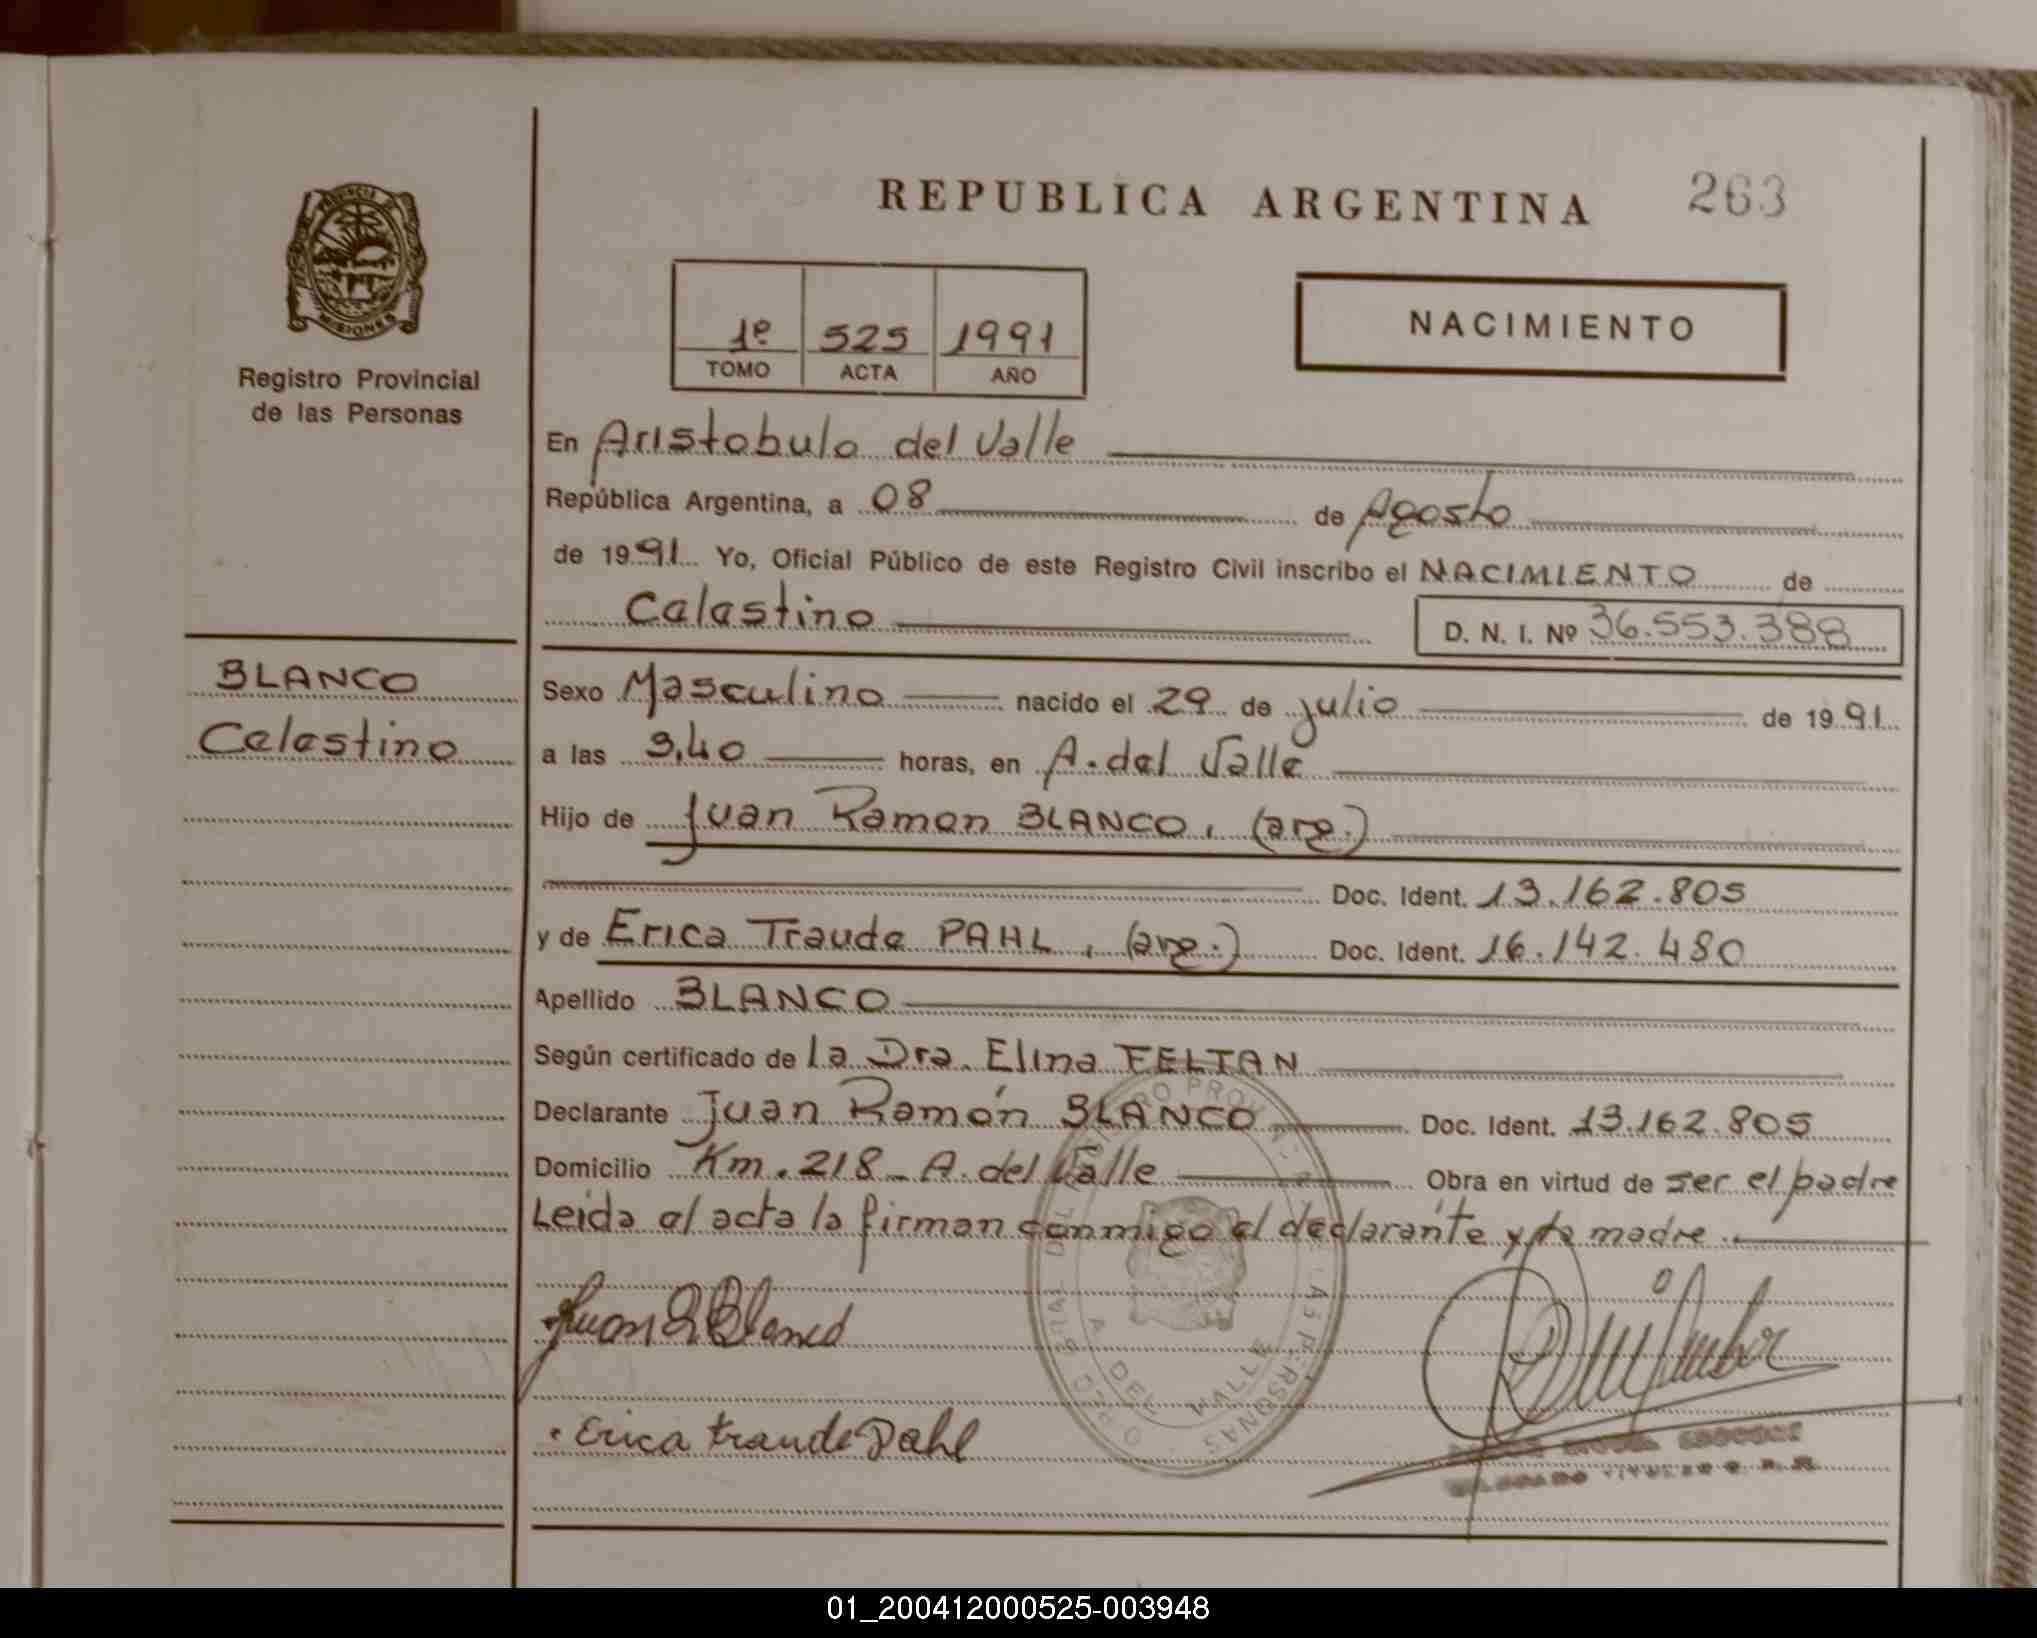 REPUBLICA ARGENTINA 263
PROVINCIA
MISIONES
Registro Provincial
de las Personas
1º 525 1991
TOMO ACTA AÑO
NACIMIENTO
En Aristobulo del Valle
República Argentina, a 08 de Agosto
de 1991 Yo, Oficial Público de este Registro Civil inscribo el NACIMIENTO de
Celestino D. N. I. Nº 36.553.388
BLANCO
Celestino
Sexo Masculino nacido el 29 de julio de 1991
a las 3,40 horas, en A. del Valle
Hijo de Juan Ramon BLANCO, (arg.)
Doc. Ident. 13.162.805
y de Erica Traude PAHL, (arg.) Doc. Ident. 16.142.480
Apellido BLANCO
Según certificado de la Dra. Elina FELTAN
Declarante Juan Ramón BLANCO Doc. Ident. 13.162.805
Domicilio Km. 218 - A. del Valle Obra en virtud de ser el padre
Leida el acta la firman conmigo el declarante y la madre.
Juan R Blanco
Erica traude Pahl
A. DEL VALLE
01_200412000525-003948